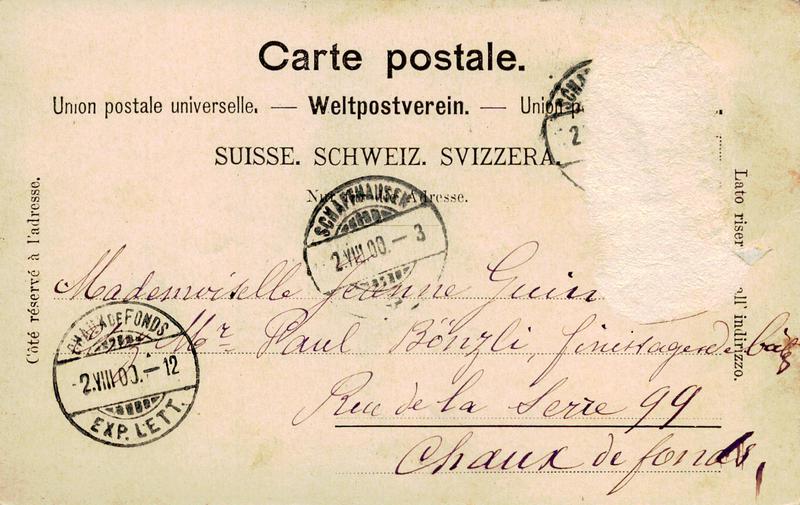 Carte postale.
Union postale universelle. — Weltpostverein. — Union p
SUISSE. SCHWEIZ. SVIZZERA.
Nur Adresse.
Côté réservé à l'adresse.
Lato riser all' indirizzo.
SCHAFFHAUSEN
2.VIII.00.–3
SCHA
2
Mademoiselle Jeanne Guin
chez Mr Paul Bönzli, finissages de
Rue de la Serre 99
Chaux de fonds,
CHAUX DE FONDS
2.VIII.00.–12
EXP. LETT.